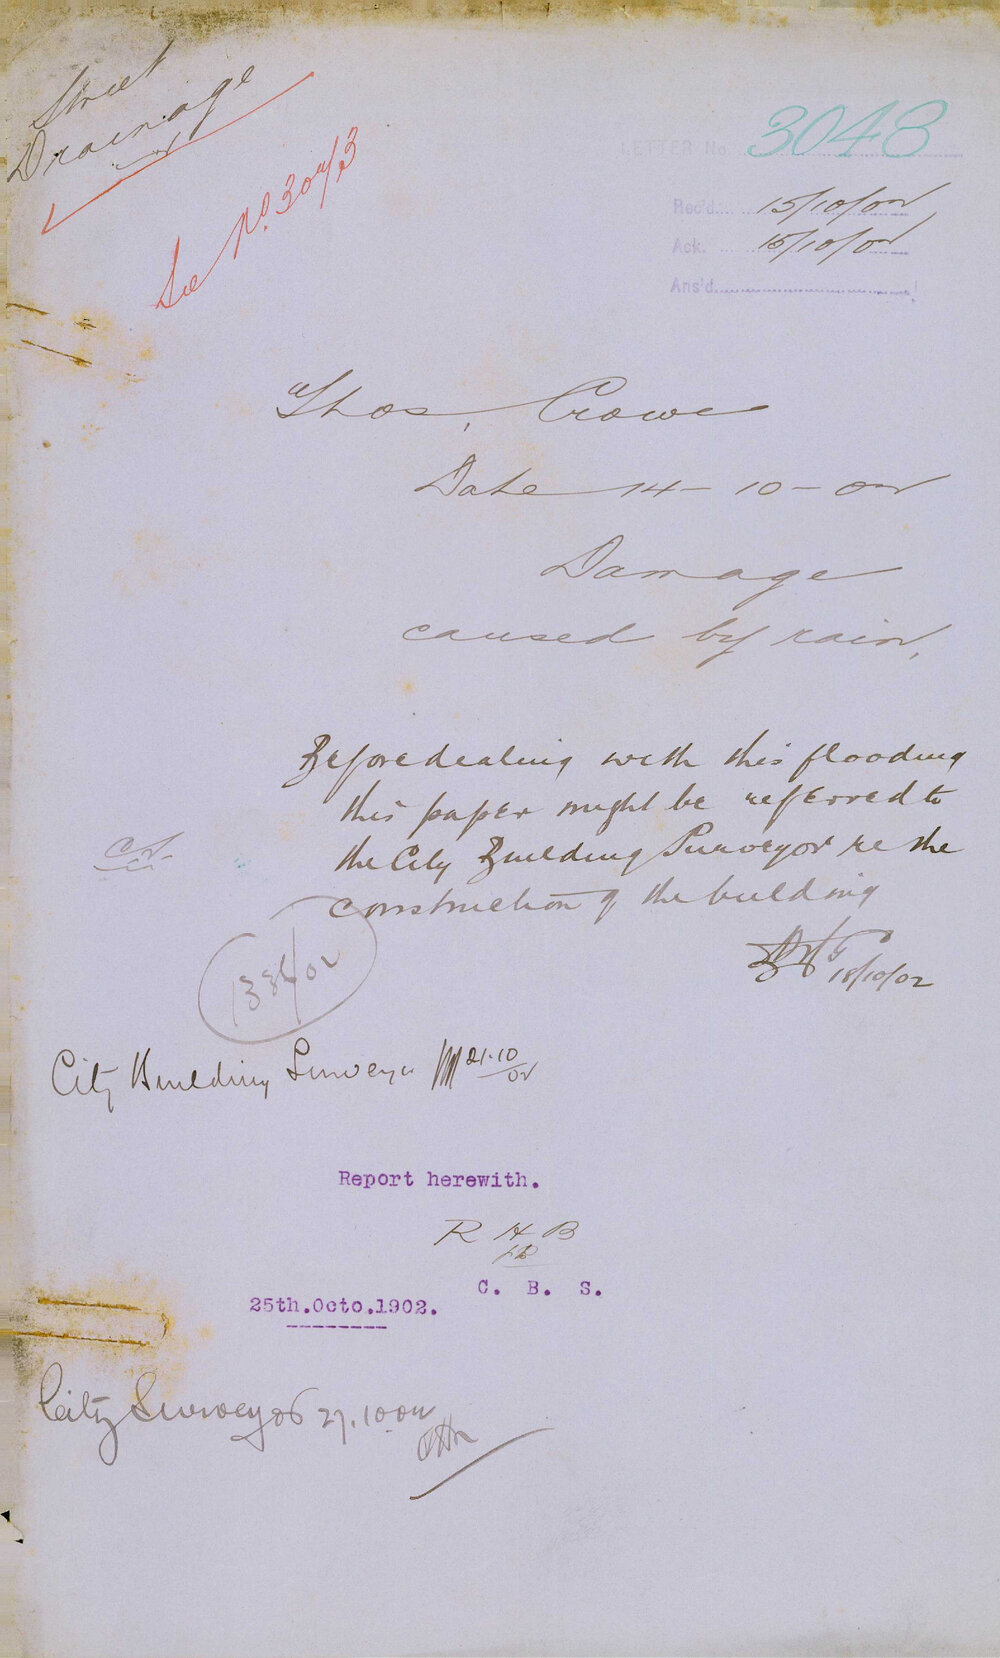 Street
Drainage
See No. 304/3
LETTER No. 3048
Rec'd. 15/10/02
Ack. 15/10/02
Ans'd.
Thos. Crowe
Date 14-10-02
Damage
caused by rain.
Before dealing with this flooding
this paper might be referred to
the City Building Surveyor re the
construction of the building
18/10/02
C.S.
1386/02
City Building Surveyor 21.10/02
Report herewith.
R H B
C. B. S.
25th.Octo.1902.
City Surveyor 27.10.02